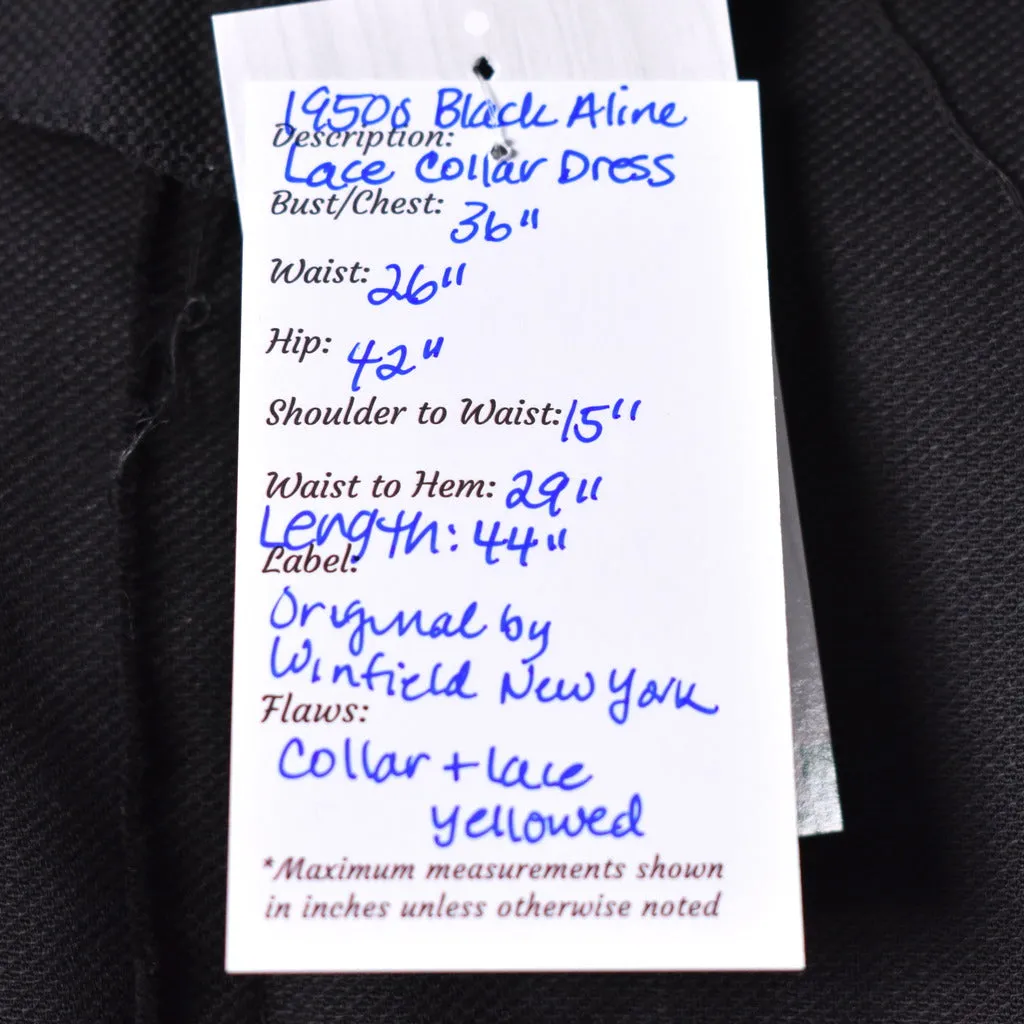 1950s Black Aline
Description:
Lace Collar Dress
Bust/Chest: 36"
Waist: 26"
Hip: 42"
Shoulder to Waist: 15"
Waist to Hem: 29"
Length: 44"
Label:
Original by
Winfield New York
Flaws:
Collar + lace
yellowed
*Maximum measurements shown
in inches unless otherwise noted